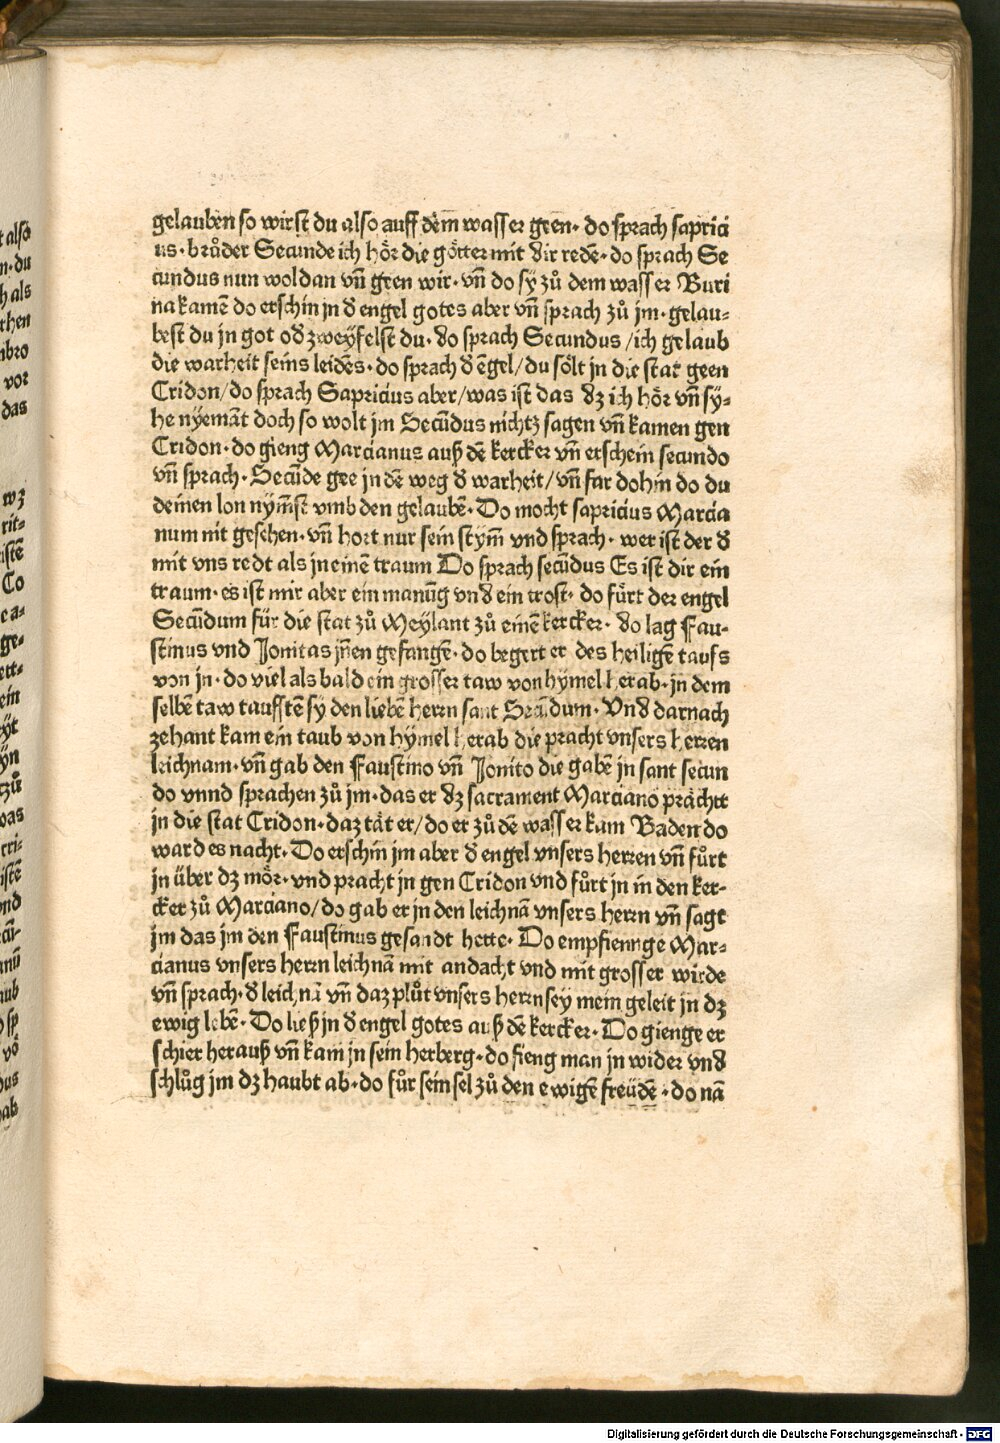 gelauben so wirst du also auff dem wasser geen· do sprach saprici
us· brůder Secunde ich hőr die gőtter mit dir redē· do sprach Se
cundus nun woldan vn̄ geen wir· vn̄ do sy zů dem wasser Buri
na kamē do erschin jn đ engel gotes aber vn̄ sprach zů jm· gelau⸗
best du jn got ođ zweyfelst du· do sprach Secundus /ich gelaub
die warheit seins leidēs· do sprach đ ēgel/ du sőlt in die stat geen
Tridon/ do sprach Sapricius aber/ was ist das dz ich hőr vn̄ sy⸗
he nyemāt doch so wolt jm Secūdus nichtz sagen vn̄ kamen gen
Tridon· do gieng Marcianus auß dē kercker vn̄ erschein secundo
vn̄ sprach· Secūde gee jn dē weg đ warheit/ vn̄ far dohin do du
deinen lon nym̄st vmb den gelaubē· Do mocht sapricius Marcia
num nit gesehen· vn̄ hort nur sein stym̄ vnd sprach· wer ist der đ
mit vns redt als jn einē traum Do sprach secūdus Es ist dir ein
traum· es ist mir aber ein manūg vnd ein trost· do fűrt der engel
Secūdum für die stat zů Meylant zů einē kercker· do lag Fau⸗
stinus vnd Jonitas jn̄en gefangē· do begert er des heiligē taufs
von jn· do viel als bald ein grosser taw von hymel herab· jn dem
selbē taw taufftē sy den liebē herrn sant Secūdum· Vnd darnach
zehant kam ein taub von hymel herab die pracht vnsers herren
leichnam· vn̄ gab den Faustino vn̄ Jonito die gabē jn sant secun
do vnnd sprachen zů jm· das er dz sacrament Marciano prächt
in die stat Tridon· daz tät er/ do er zů dē wasser kam Baden do
ward es nacht· Do erschin jm aber đ engel vnsers herren vn̄ fůrt
jn über dz mőr· vnd pracht jn gen Tridon vnd fůrt jn in den ker⸗
cker zů Marciano/ do gab er jn den leichnā vnsers herrn vn̄ sagt
jm das jm den Faustinus gesandt hette· Do empfiennge Mar⸗
cianus vnsers herrn leichnā mit andacht vnd mit grosser wirde
vn̄ sprach· đ leichnā vn̄ daz plůt vnsers herrn sey mein geleit jn dz
ewig lebē· Do ließ jn đ engel gotes auß dē kercker· Do gienge er
schier herauß vn̄ kam jn sein herberg· do fieng man jn wider vnd
schlůg jm dz haubt ab· do fůr sein sel zů den ewigē freüdē· do nā
Digitalisierung gefördert durch die Deutsche Forschungsgemeinschaft - DFG